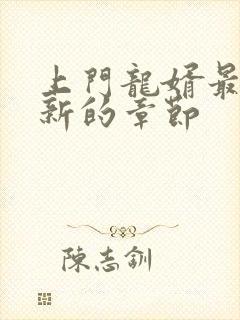 上門龍婿最
新的章節
陳志釧